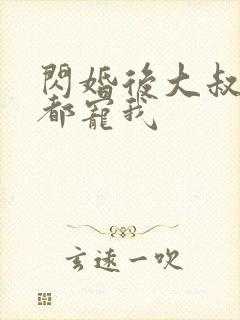 閃婚後大叔
都寵我
玄遠一吹